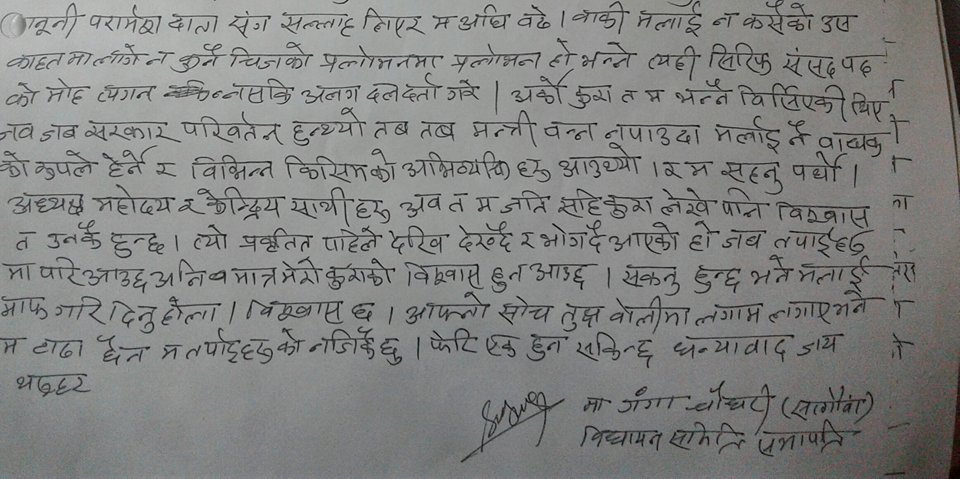 नूनी परामर्श दाता संग सल्लाह लिएर म अघि बढे । बाकी मलाई न कसैको उस
काहतमा लागे न कुनै चिजको प्रलोभनमा प्रलोभन हो भन्ने त्यही सिर्फि संसद पद
को मोह त्याग्न नसकि अलग दल दर्ता गरे । अर्को कुरा त म भन्नै विर्सिएकी थिए
जव जब सरकार परिवर्तन हुन्थ्यो तब तब मन्त्री वन्न नपाउदा मलाई नै वाधक
को रुपले हेर्ने र विभिन्न किसिमको अभिव्यक्ति हरु आउथ्यो । र म सहनु पर्थ्यो ।
अध्यक्ष महोदय र केन्द्रिय साथीहरु अव त म जति सहि कुरा लेखे पनि विश्वास
त उनकै हुन्छ । त्यो प्रवृतित पहिले देखि देख्दै र भोग्दै आएको हो जब तपाईहरु
मा परि आउछ अनि व मात्र मेरो कुराको विश्वास हुन आउछ । सक्नु हुन्छ भने मलाई
माफ गरि दिनु होला । विश्वास छ । आफ्नो सोच तुछ वोलीमा लगाम लगाए भने
म टाढा छैन म तपाईहरु को नजिकै छु । फेरि एक हुन सकिन्छ धन्यावाद जय
थरुहट
मा गंगा चौधरी (सतगौवा)
विधायन समिति सभापति